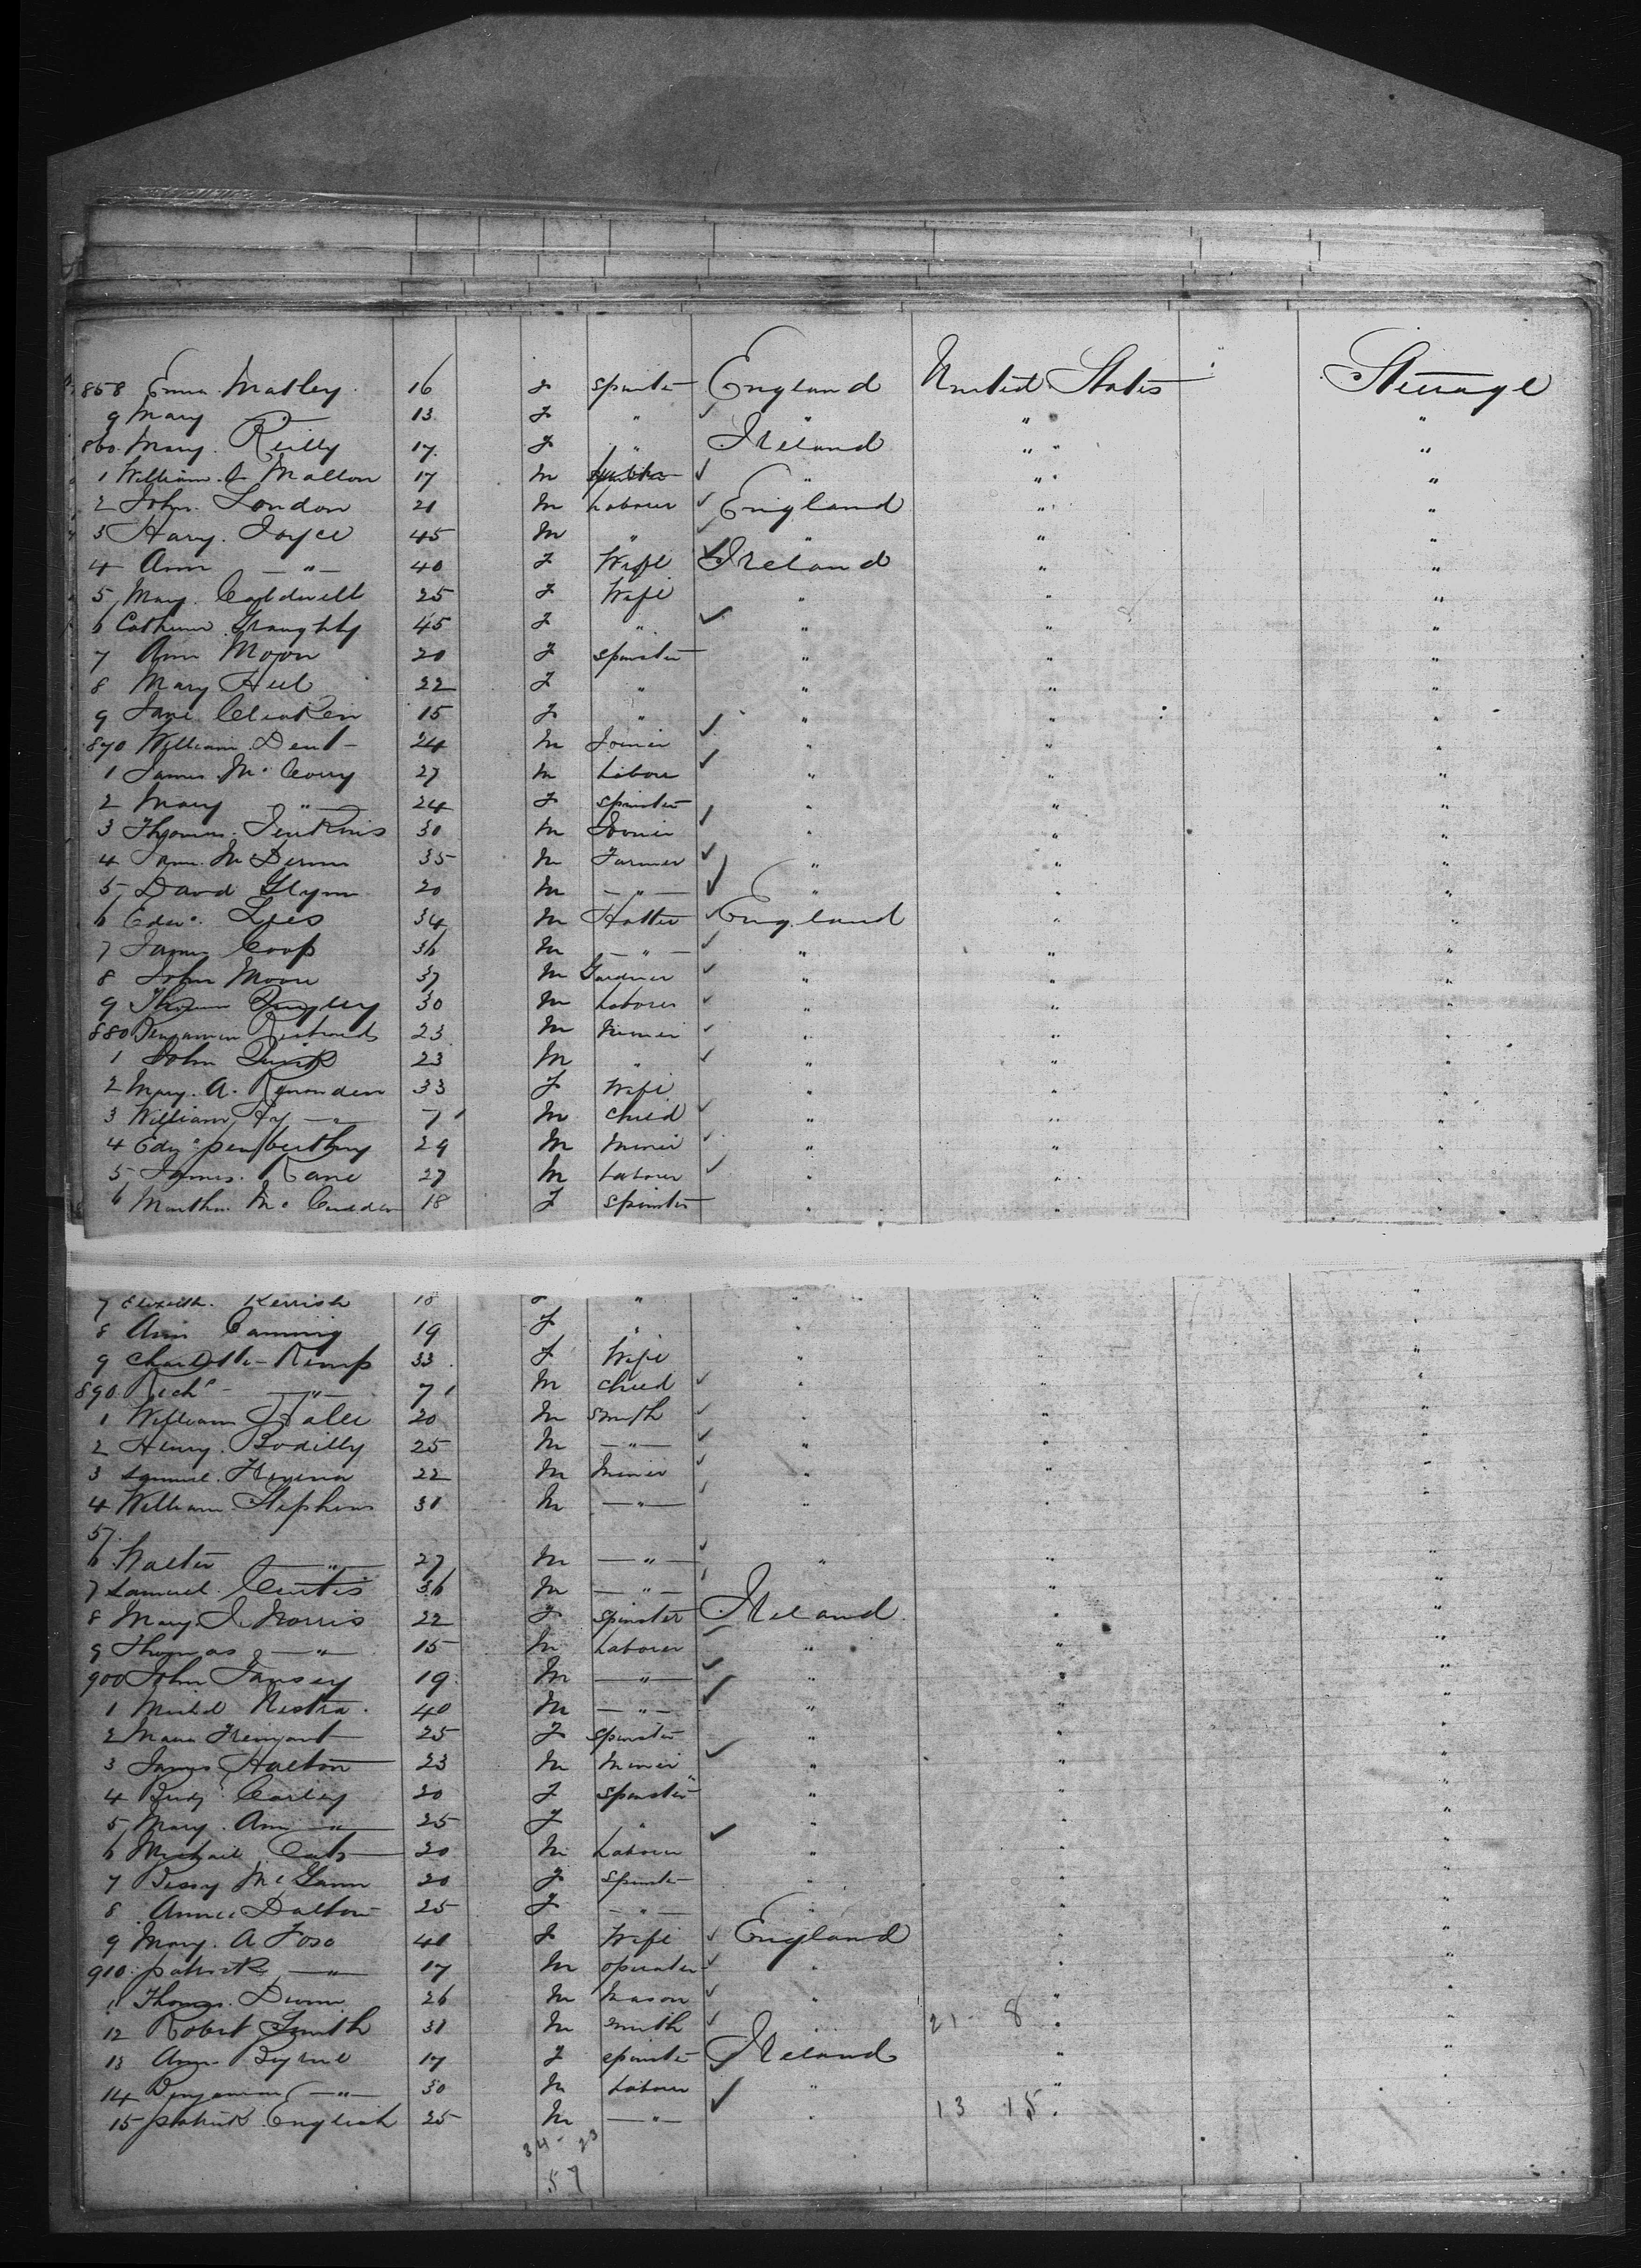 858 Emma Matley 16 F Spinster England United States Steerage
9 Mary 13 F " " " "
860 Mary Reilly 17 F " Ireland " "
1 William Mallon 17 M " " "
2 John London 21 M Laborer England " "
3 Harry Joyce 45 M " " " "
4 Ann — " — 40 F Wife Ireland " "
5 Mary Caldwell 25 F Wife " " "
6 Catherine 45 F " " " "
7 Ann Moran 20 F Spinster " " "
8 Mary 22 F " " " "
9 Jane 15 F " " " "
870 William Dent 24 M Joiner " " "
1 James Mc 27 M Labore " " "
2 Mary — " — 24 F Spinster " " "
3 Thomas Jenkins 30 M Joiner " " "
4 35 M Farmer " " "
5 David Glynn 20 M — " — " " "
6 Edwd Lees 34 M Hatter England " "
7 James Coop 36 M — " — " " "
8 John Moore 37 M Gardner " " "
9 30 M Laborer " " "
880 Benjamin Richards 23 M Miner " " "
1 John Quirk 23 M " " " "
2 Mary A. 33 F Wife " " "
3 William Hy — " — 7 M Child " " "
4 Edwd Penberthy 29 M Miner " " "
5 James Kane 27 M Laborer " " "
6 Martha Mc 18 F Spinster " " "
7 Elizabth Kerrish 18 F " " " "
8 Ann Canning 19 F " " " "
9 Charlotte Kemp 33 F Wife " " "
890 Richd — " — 7 M Child " " "
1 William 20 M Smith " " "
2 Henry Bodilly 25 M — " — " " "
3 Samuel 22 M Miner " " "
4 William Stephens 31 M — " — " " "
5
6 Walter — " — 27 M — " — " " "
7 Samuel Curtis 36 M — " — " "
8 Mary J. Norris 22 F Spinster Ireland " "
9 Thomas — " — 15 M Laborer " " "
900 John Tansey 19 M — " — " " "
1 40 M — " — " " "
2 25 F Spinster " " "
3 James Halton 23 M Miner " " "
4 Bridgt Carley 20 F Spinster " " "
5 Mary Ann — " — 25 F " " " "
6 Michael 20 M Laborer " " "
7 Bessy McGann 20 F Spinster " " "
8 Annie Dalton 25 F — " — " " "
9 Mary A Foso 40 F Wife England " "
910 Patrick — " — 17 M Operator " " "
11 Thomas Dunn 26 M Mason " " "
12 Robert Smith 31 M Smith " 21 8 " "
13 Ann Byrne 17 F Spinster Ireland " "
14 Benjamin — " — 30 M Laborer " " "
15 Patrick English 25 M — " — " 13 15 " "
34 - 23
57